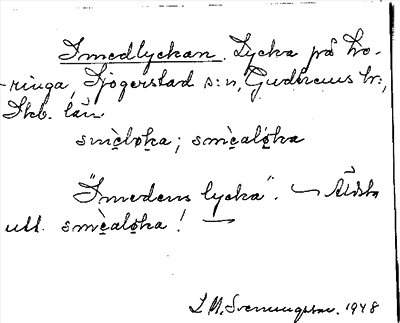 Smedlyckan. Lycka på Lo-
ringa, Sjögerstad s:n, Gudhems hr:,
Skb. län
smèlo̱ka; smèalo̱ka
"Smedens lycka". — Äldsta
utt. smèalo̱ka! —
L M. Svenungsson. 1948